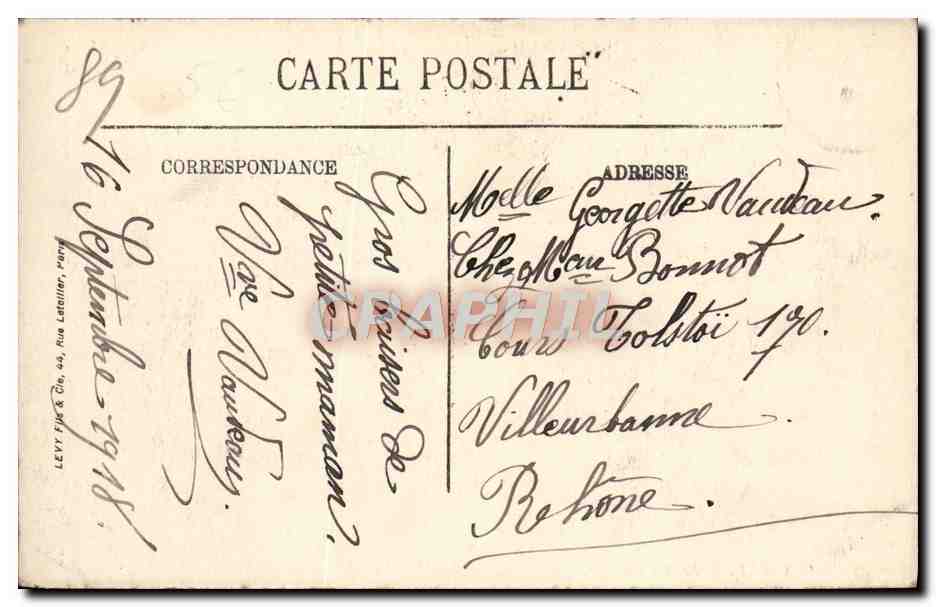 CARTE POSTALE
CORRESPONDANCE
ADRESSE
89
16 Septembre 1918.
Gros baisers de
petite maman.
Vve Vaudeau
Melle Georgette Vaudeau.
Chez Mau Bonnot
Cours Tolstoï 170.
Villeurbanne
Rhône.
LEVY Fils & Cie, 44, Rue Letellier, Paris
CPAPHIL